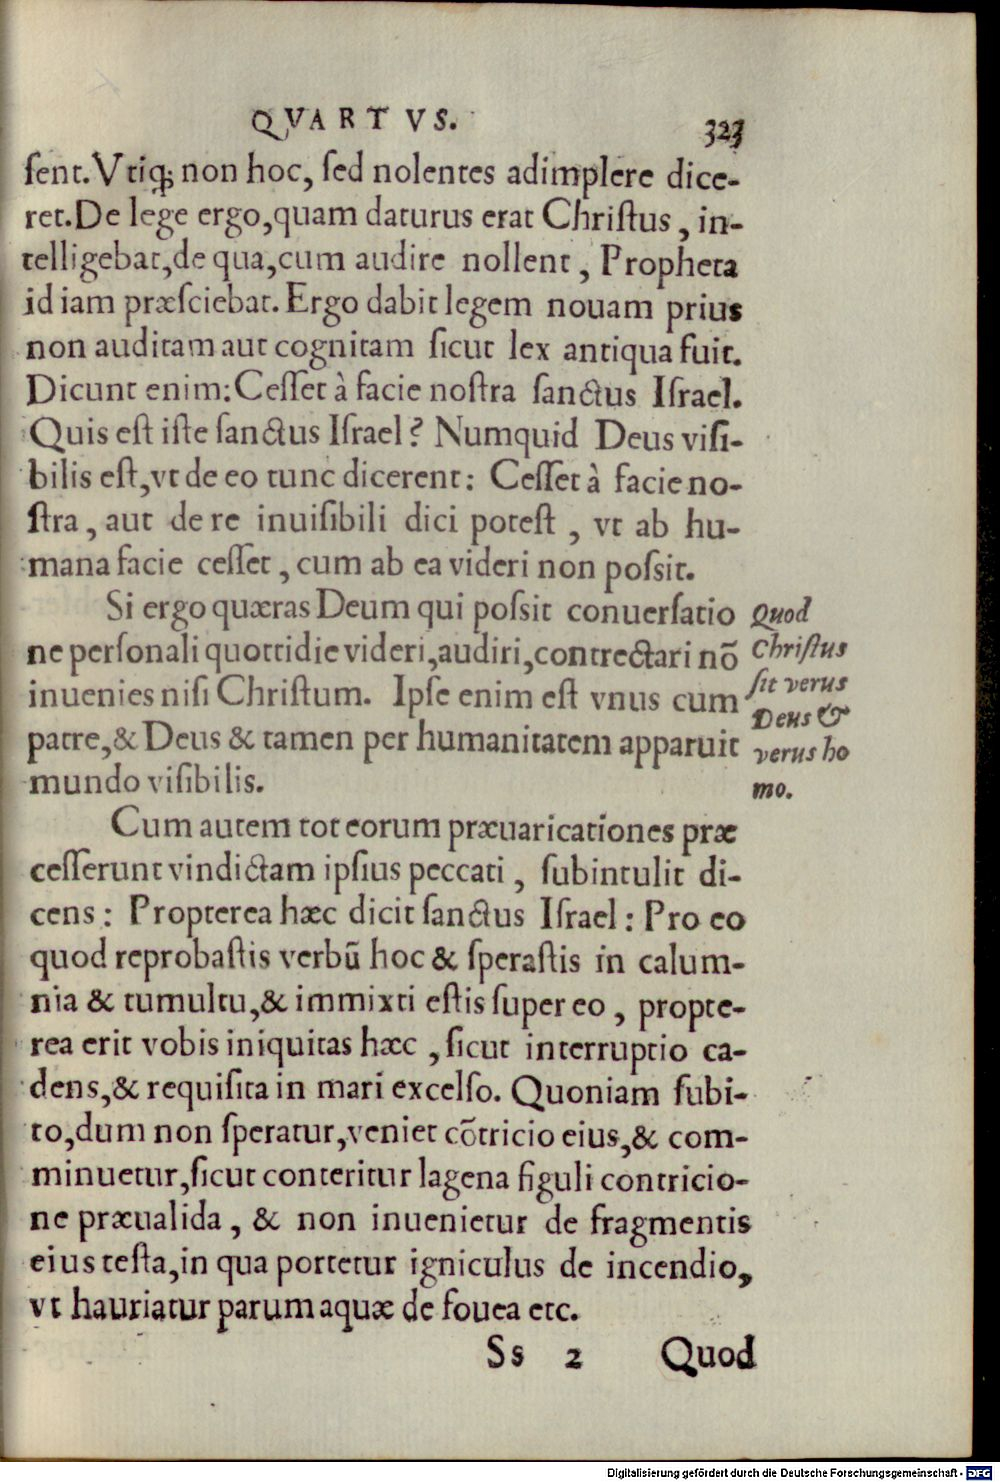 QVARTVS. 323
sent. Vtiq; non hoc, sed nolentes adimplere dice-
ret. De lege ergo, quam daturus erat Christus, in-
telligebat, de qua, cum audire nollent, Propheta
id iam præsciebat. Ergo dabit legem nouam prius
non auditam aut cognitam sicut lex antiqua fuit.
Dicunt enim: Cesset à facie nostra sanctus Israel.
Quis est iste sanctus Israel? Numquid Deus visi-
bilis est, vt de eo tunc dicerent: Cesset à facie no-
stra, aut de re inuisibili dici potest, vt ab hu-
mana facie cesset, cum ab ea videri non possit.
Si ergo quæras Deum qui possit conuersatio
ne personali quottidie videri, audiri, contrectari nõ
inuenies nisi Christum. Ipse enim est vnus cum
patre, & Deus & tamen per humanitatem apparuit
mundo visibilis.
Quod
Christus
sit verus
Deus &
verus ho
mo.
Cum autem tot eorum præuaricationes præ
cesserunt vindictam ipsius peccati, subintulit di-
cens: Propterea hæc dicit sanctus Israel: Pro eo
quod reprobastis verbũ hoc & sperastis in calum-
nia & tumultu, & immixti estis super eo, propte-
rea erit vobis iniquitas hæc, sicut interruptio ca-
dens, & requisita in mari excelso. Quoniam subi-
to, dum non speratur, veniet cõtricio eius, & com-
minuetur, sicut conteritur lagena figuli contricio-
ne præualida, & non inuenietur de fragmentis
eius testa, in qua portetur igniculus de incendio,
vt hauriatur parum aquæ de fouea etc.
Ss 2 Quod
Digitalisierung gefördert durch die Deutsche Forschungsgemeinschaft - DFG